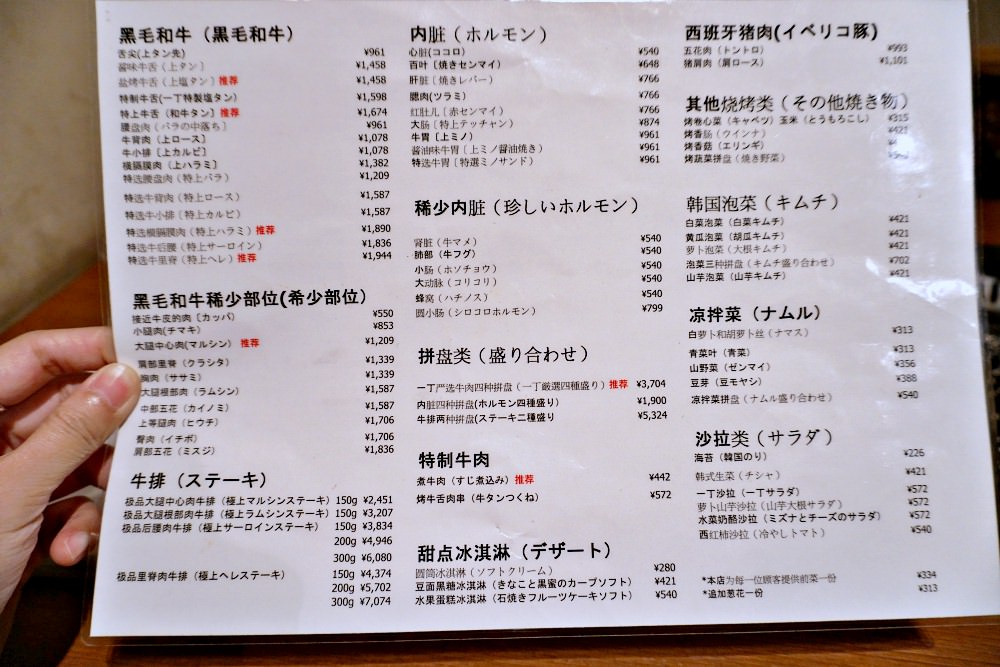 黑毛和牛（黒毛和牛）
舌尖(上タン先) ¥961
酱味牛舌（上タン） ¥1,458
盐烤牛舌（上塩タン）推荐 ¥1,458
特制牛舌(一丁特製塩タン) ¥1,598
特上牛舌（和牛タン）推荐 ¥1,674
腰盘肉（バラの中落ち） ¥961
牛背肉（上ロース） ¥1,078
牛小排（上カルビ） ¥1,078
横膈膜肉（上ハラミ） ¥1,382
特选腰盘肉（特上バラ） ¥1,209
特选牛背肉（特上ロース） ¥1,587
特选牛小排（特上カルビ） ¥1,587
特选横膈膜肉（特上ハラミ）推荐 ¥1,890
特选牛后腰（特上サーロイン） ¥1,836
特选牛里脊（特上ヘレ）推荐 ¥1,944
黑毛和牛稀少部位(希少部位)
接近牛皮的肉〔カッパ〕 ¥550
小腿肉(チマキ) ¥853
大腿中心肉(マルシン) 推荐 ¥1,209
肩部里脊（クラシタ） ¥1,339
胸肉（ササミ） ¥1,339
大腿根部肉（ラムシン） ¥1,587
中部五花（カイノミ） ¥1,587
上等腿肉（ヒウチ） ¥1,706
臀肉（イチボ） ¥1,706
肩部五花（ミスジ） ¥1,836
牛排（ステーキ）
极品大腿中心肉牛排（極上マルシンステーキ）150g ¥2,451
极品大腿根部肉牛排（極上ラムシンステーキ）150g ¥3,207
极品后腰肉牛排（極上サーロインステーキ） 150g ¥3,834
200g ¥4,946
300g ¥6,080
极品里脊肉牛排（極上ヘレステーキ） 150g ¥4,374
200g ¥5,702
300g ¥7,074
内脏（ホルモン）
心脏(ココロ) ¥540
百叶〔焼きセンマイ） ¥648
肝脏（焼きレバー） ¥766
腮肉(ツラミ) ¥766
红肚儿〔赤センマイ） ¥766
大肠〔特上テッチャン〕 ¥874
牛胃〔上ミノ） ¥961
酱油味牛胃〔上ミノ醤油焼き） ¥961
特选牛胃〔特選ミノサンド） ¥961
稀少内脏（珍しいホルモン）
肾脏（牛マメ） ¥540
肺部（牛フグ） ¥540
小肠（ホソチョウ） ¥540
大动脉（コリコリ） ¥540
蜂窝（ハチノス） ¥540
圆小肠（シロコロホルモン） ¥799
拼盘类（盛り合わせ）
一丁严选牛肉四种拼盘（一丁厳選四種盛り）推荐 ¥3,704
内脏四种拼盘(ホルモン四種盛り) ¥1,900
牛排两种拼盘(ステーキ二種盛り ¥5,324
特制牛肉
煮牛肉（すじ煮込み）推荐 ¥442
烤牛舌肉串（牛タンつくね） ¥572
甜点冰淇淋（デザート）
圆筒冰淇淋（ソフトクリーム） ¥280
豆面黑糖冰淇淋（きなこと黒蜜のカープソフト） ¥421
水果蛋糕冰淇淋（石焼きフルーツケーキソフト） ¥540
西班牙猪肉(イベリコ豚)
五花肉（トントロ） ¥993
猪肩肉（肩ロース） ¥1,101
其他烧烤类（その他焼き物）
烤卷心菜（キャベツ）玉米（とうもろこし） ¥315
烤香肠（ウインナ） ¥421
烤香菇（エリンギ）
烤蔬菜拼盘（焼き野菜）
韩国泡菜（キムチ）
白菜泡菜（白菜キムチ） ¥421
黄瓜泡菜（胡瓜キムチ） ¥421
萝卜泡菜（大根キムチ） ¥421
泡菜三种拼盘（キムチ盛り合わせ） ¥702
山芋泡菜（山芋キムチ） ¥421
凉拌菜（ナムル）
白萝卜和胡萝卜丝（ナマス） ¥313
青菜叶（青菜） ¥313
山野菜（ゼンマイ） ¥356
豆芽（豆モヤシ） ¥388
凉拌菜拼盘（ナムル盛り合わせ） ¥540
沙拉类（サラダ）
海苔（韓国のり） ¥226
韩式生菜（チシャ） ¥421
一丁沙拉（一丁サラダ） ¥572
萝卜山芋沙拉（山芋大根サラダ） ¥572
水菜奶酪沙拉（ミズナとチーズのサラダ） ¥572
西红柿沙拉（冷やしトマト） ¥540
*本店为每一位顾客提供前菜一份 ¥334
*追加葱花一份 ¥313